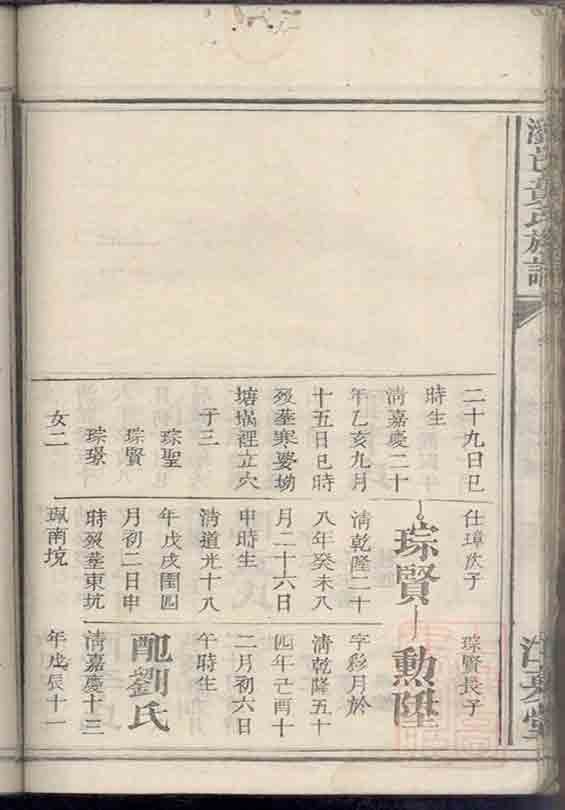 瀏邑黃氏族譜
江夏堂
二十九日巳
時生
清嘉慶二十
年乙亥九月
十五日巳時
歿塟寒婆坳
塘堝裡立穴
子三
琮聖
琮賢
琮璟
女二
仕璋次子
琮賢
清乾隆二十
八年癸未八
月二十六日
申時生
清道光十八
年戊戌閏四
月初二日申
時歿塟東坑
南境
琮賢長子
勲陞
字彩月於
清乾隆五十
四年己酉十
二月初六日
午時生
配劉氏
清嘉慶十三
年戊辰十一